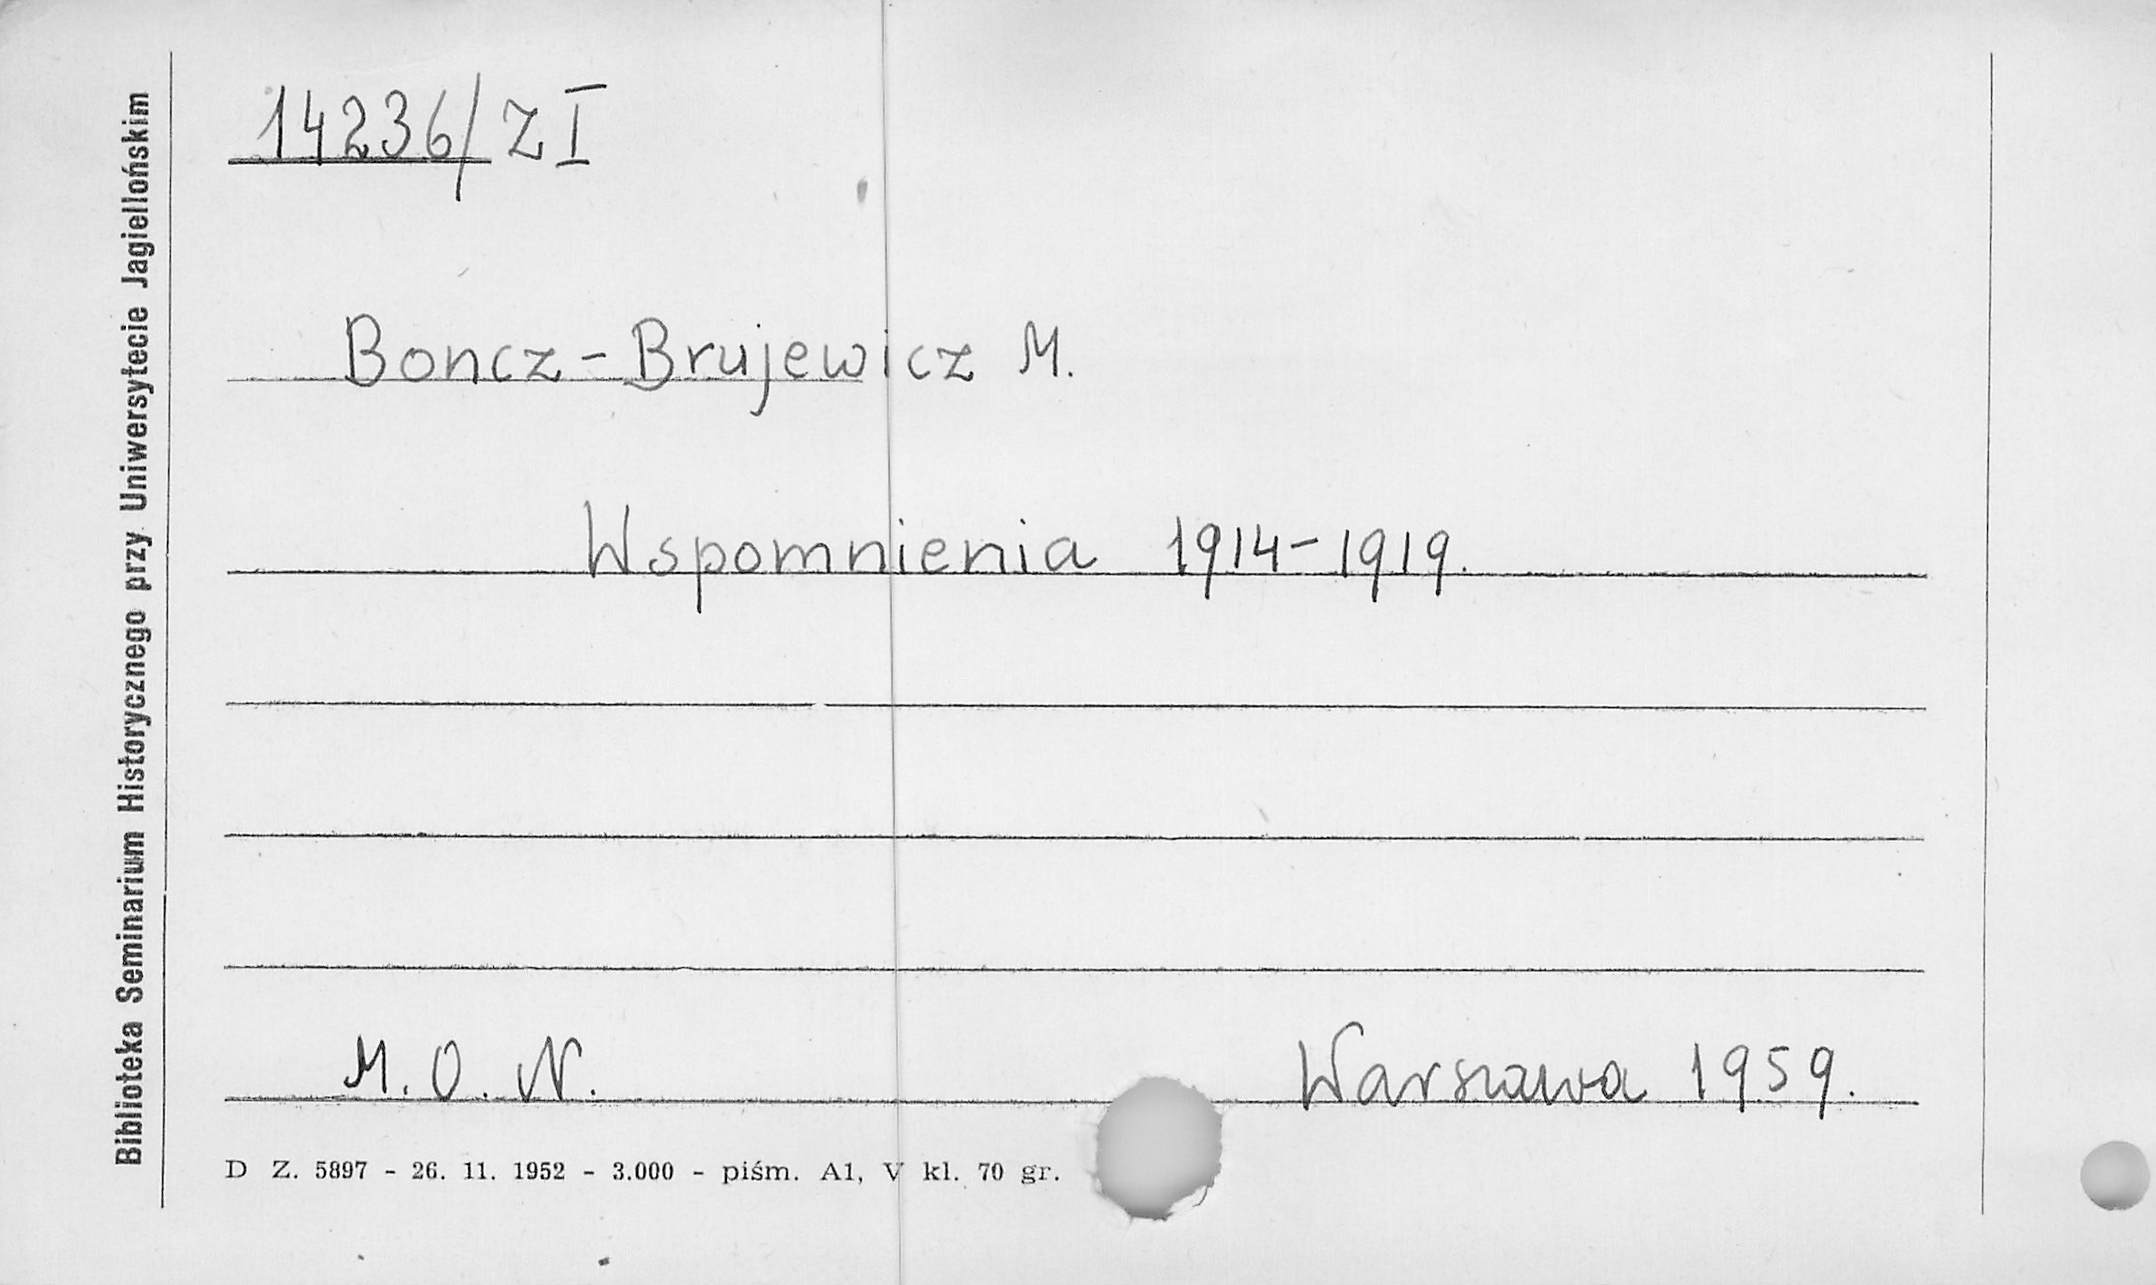 14236/Z I
Boncz-Brujewicz M.
Wspomnienia 1914-1919.
M. O. N. Warszawa 1959.
D Z. 5897 - 26. 11. 1952 - 3.000 - piśm. A1, V kl. 70 gr.
Biblioteka Seminarium Historycznego przy Uniwersytecie Jagiellońskim